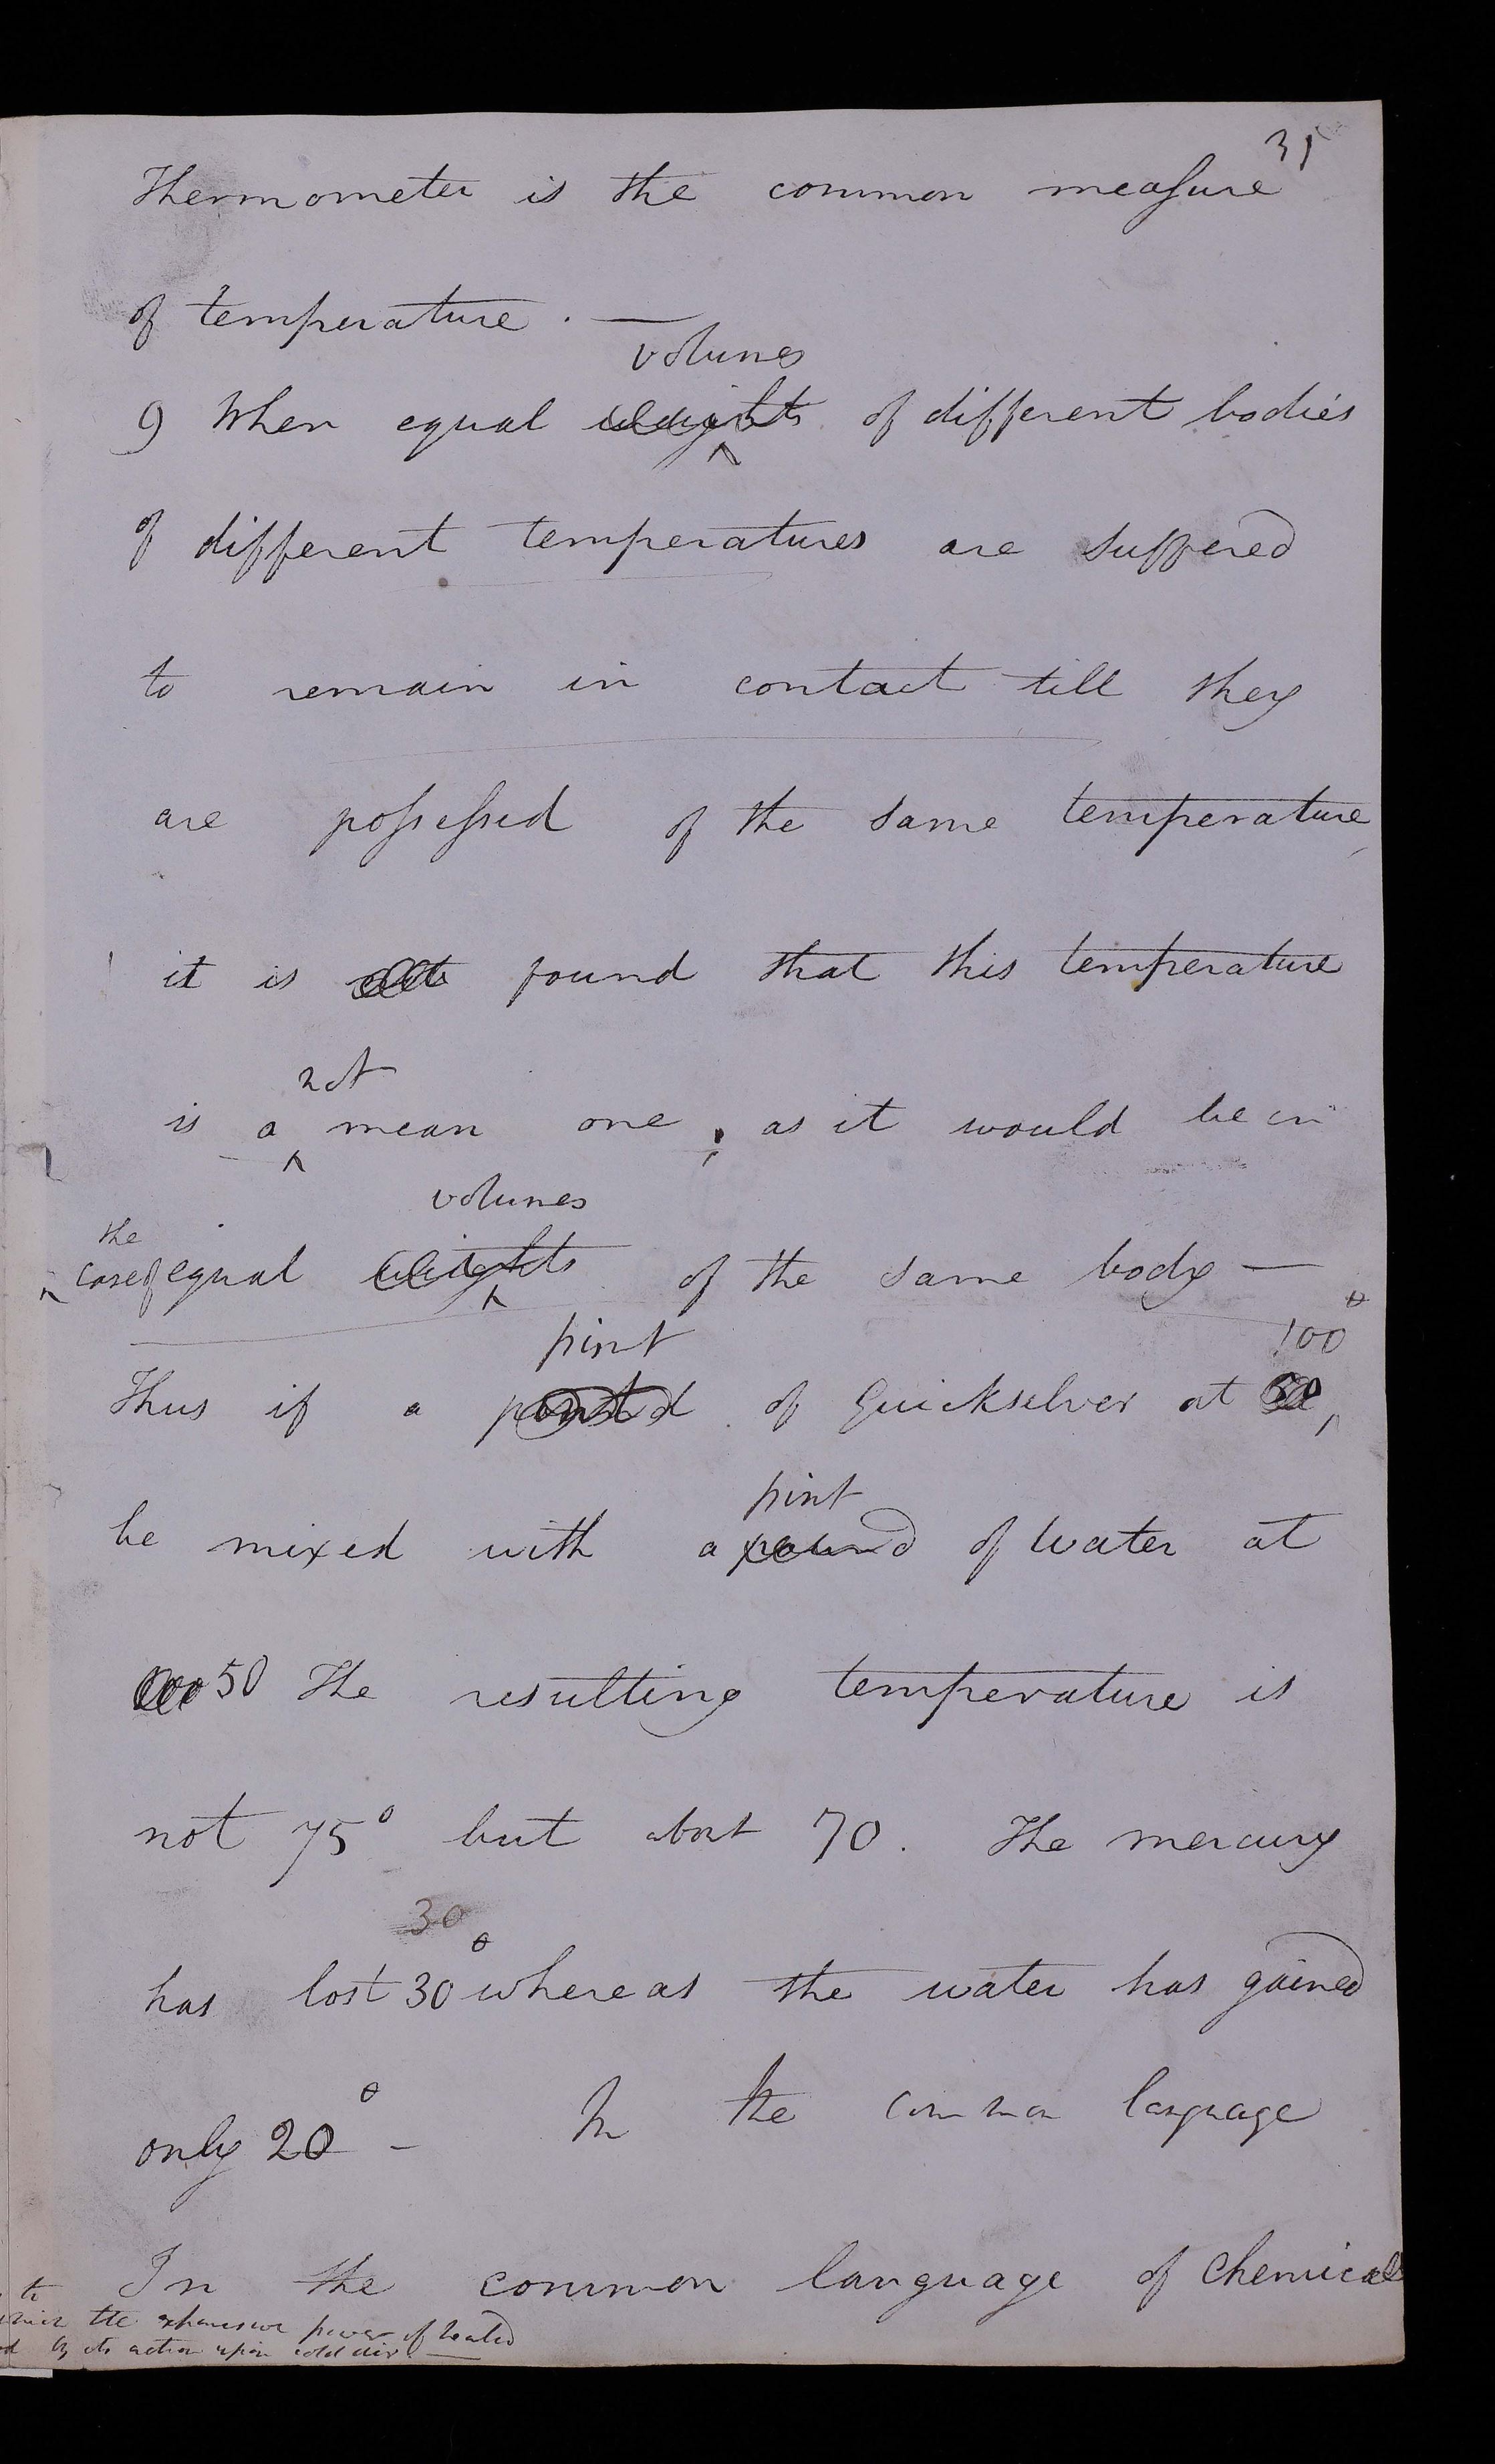 35
Thermometer is the common measure
of temperature. —
volumes
9 When equal weights of different bodies
of different temperatures are suffered
to remain in contact till they
are possessed of the same temperature,
it is found that this temperature
not
is a mean one; as it would be in
volumes
the
case of equal weights of the same body —
pint
100°
Thus if a pound of Quicksilver at
pint
be mixed with a pound of Water at
50 The resulting temperature is
not 75° but about 70. The mercury
30
has lost 30° whereas the water has gained
only 20° – In the common language
In the common language of Chemical
the expansive power of heated
by its action upon cold air. —